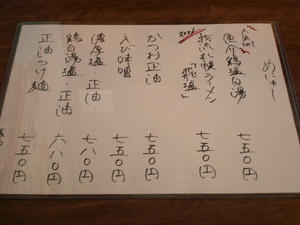 めにゅー
人気No.1
魚介鶏塩白湯 七五〇円
我流札幌ラーメン「飛塩」 七五〇円
かつお正油 七五〇円
えび味噌 七五〇円
濃厚塩・正油 七八〇円
鶏白湯塩・正油 六八〇円
正油つけ麺 七五〇円